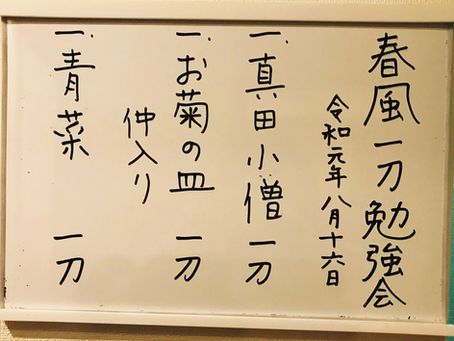 春風一刀勉強会
令和元年八月十六日
一、真田小僧 一刀
一、お菊の皿 一刀
仲入り
一、青菜 一刀